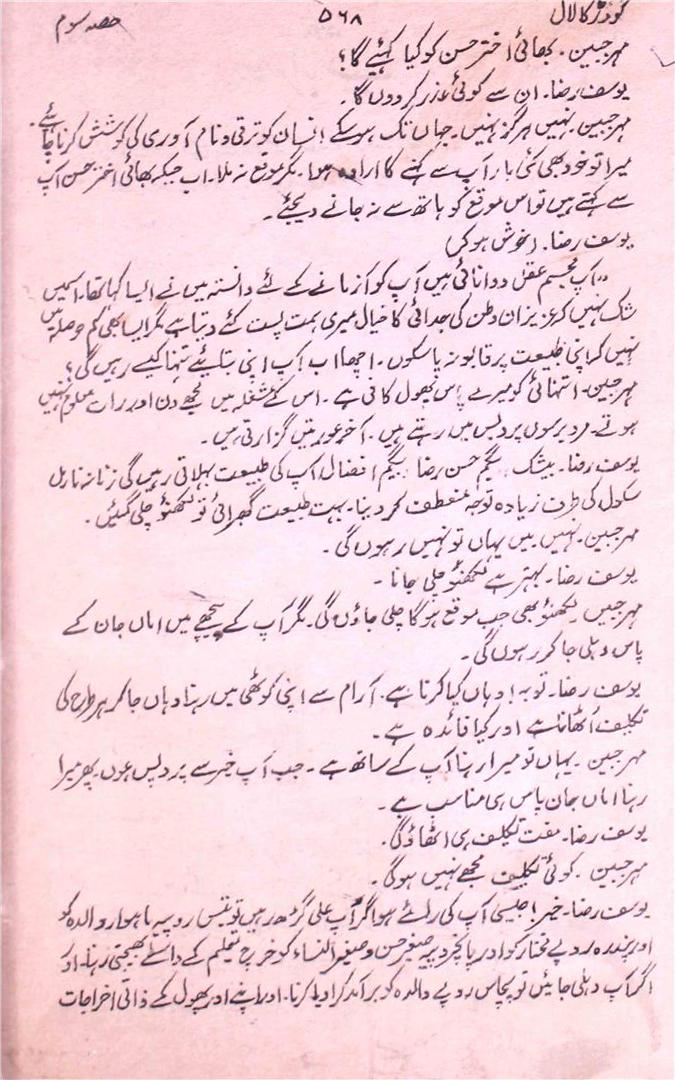 گودڑ کا لال ۵۶۸ حصہ سوم
مہر جبین۔ بھائی اختر حسن کو کیا کہئے گا؟
یوسف رضا۔ ان سے کوئی عذر کر دوں گا۔
مہر جبین۔ نہیں ہرگز نہیں۔ جہاں تک ہو سکے انسان کو ترقی و نام آوری کی کوشش کرنا چاہئے۔
میرا تو خود بھی کئی بار آپ سے کہنے کا ارادہ ہوا۔ مگر موقع نہ ملا۔ اب جبکہ بھائی اختر حسن آپ
سے کہتے ہیں تو اس موقع کو ہاتھ سے نہ جانے دیجئے۔
یوسف رضا۔ (خوش ہو کر)
"آپ مجسم عقل و دانائی ہیں آپ کو آزمانے کے لئے دانستہ میں نے ایسا کہا تھا۔ اسمیں
شک نہیں کہ عزیزان وطن کی جدائی کا خیال میری ہمت پست کئے دیتا ہے مگر ایسا بھی کم حوصلہ میں
نہیں کہ اپنی طبیعت پر قابو نہ پا سکوں۔ اچھا اب آپ اپنی بتایئے تنہا کیسے رہیں گی؟
مہر جبین۔ تنہائی کو میرے پاس پھول کافی ہے۔ اس کے مشغلہ میں مجھے دن اور رات معلوم نہیں
ہوتے۔ مرد برسوں پردیس میں رہتے ہیں۔ آخر عورتیں گزارتی ہیں۔
یوسف رضا۔ بیشک بیگم حسن رضا بیگم افضال آپ کی طبیعت بہلاتی رہیں گی زنانہ نارمل
سکول کی طرف زیادہ توجہ منعطف کر دینا۔ بہت طبیعت گھبرائی تو لکھنؤ چلی گئیں۔
مہر جبین۔ نہیں میں یہاں تو نہیں رہوں گی۔
یوسف رضا۔ بہتر ہے لکھنؤ چلی جانا۔
مہر جبیں۔ لکھنؤ بھی جب موقع ہو گا چلی جاؤں گی۔ مگر آپ کے پیچھے میں اماں جان کے
پاس دہلی جا کر رہوں گی۔
یوسف رضا۔ توبہ! وہاں کیا کرنا ہے۔ آرام سے اپنی کوٹھی میں رہنا وہاں جا کر ہر طرح کی
تکلیف اُٹھانا ہے اور کیا فائدہ ہے۔
مہر جبین۔ یہاں تو میرا رہنا آپ کے ساتھ ہے۔ جب آپ خیر سے پردیس ہوں۔ پھر میرا
رہنا اماں جان پاس ہی مناسب ہے۔
یوسف رضا۔ مفت تکلیف ہی اٹھاؤ گی۔
مہر جبین۔ کوئی تکلیف مجھے نہیں ہوگی۔
یوسف رضا۔ خیر! جیسی آپ کی رائے ہو اگر آپ علی گڑھ رہیں تو تیس روپیہ ماہوار والدہ کو
اور پندرہ روپے مختار کو اور پانچ روپیہ صغیر حسن و صغیر النساء کو خرچ تعلیم کے واسطے بھیجتی رہنا۔ اور
اگر آپ دہلی جائیں تو پچاس روپے والدہ کو برآمد کرا دیا کرنا۔ اور اپنے اور پھول کے ذاتی اخراجات